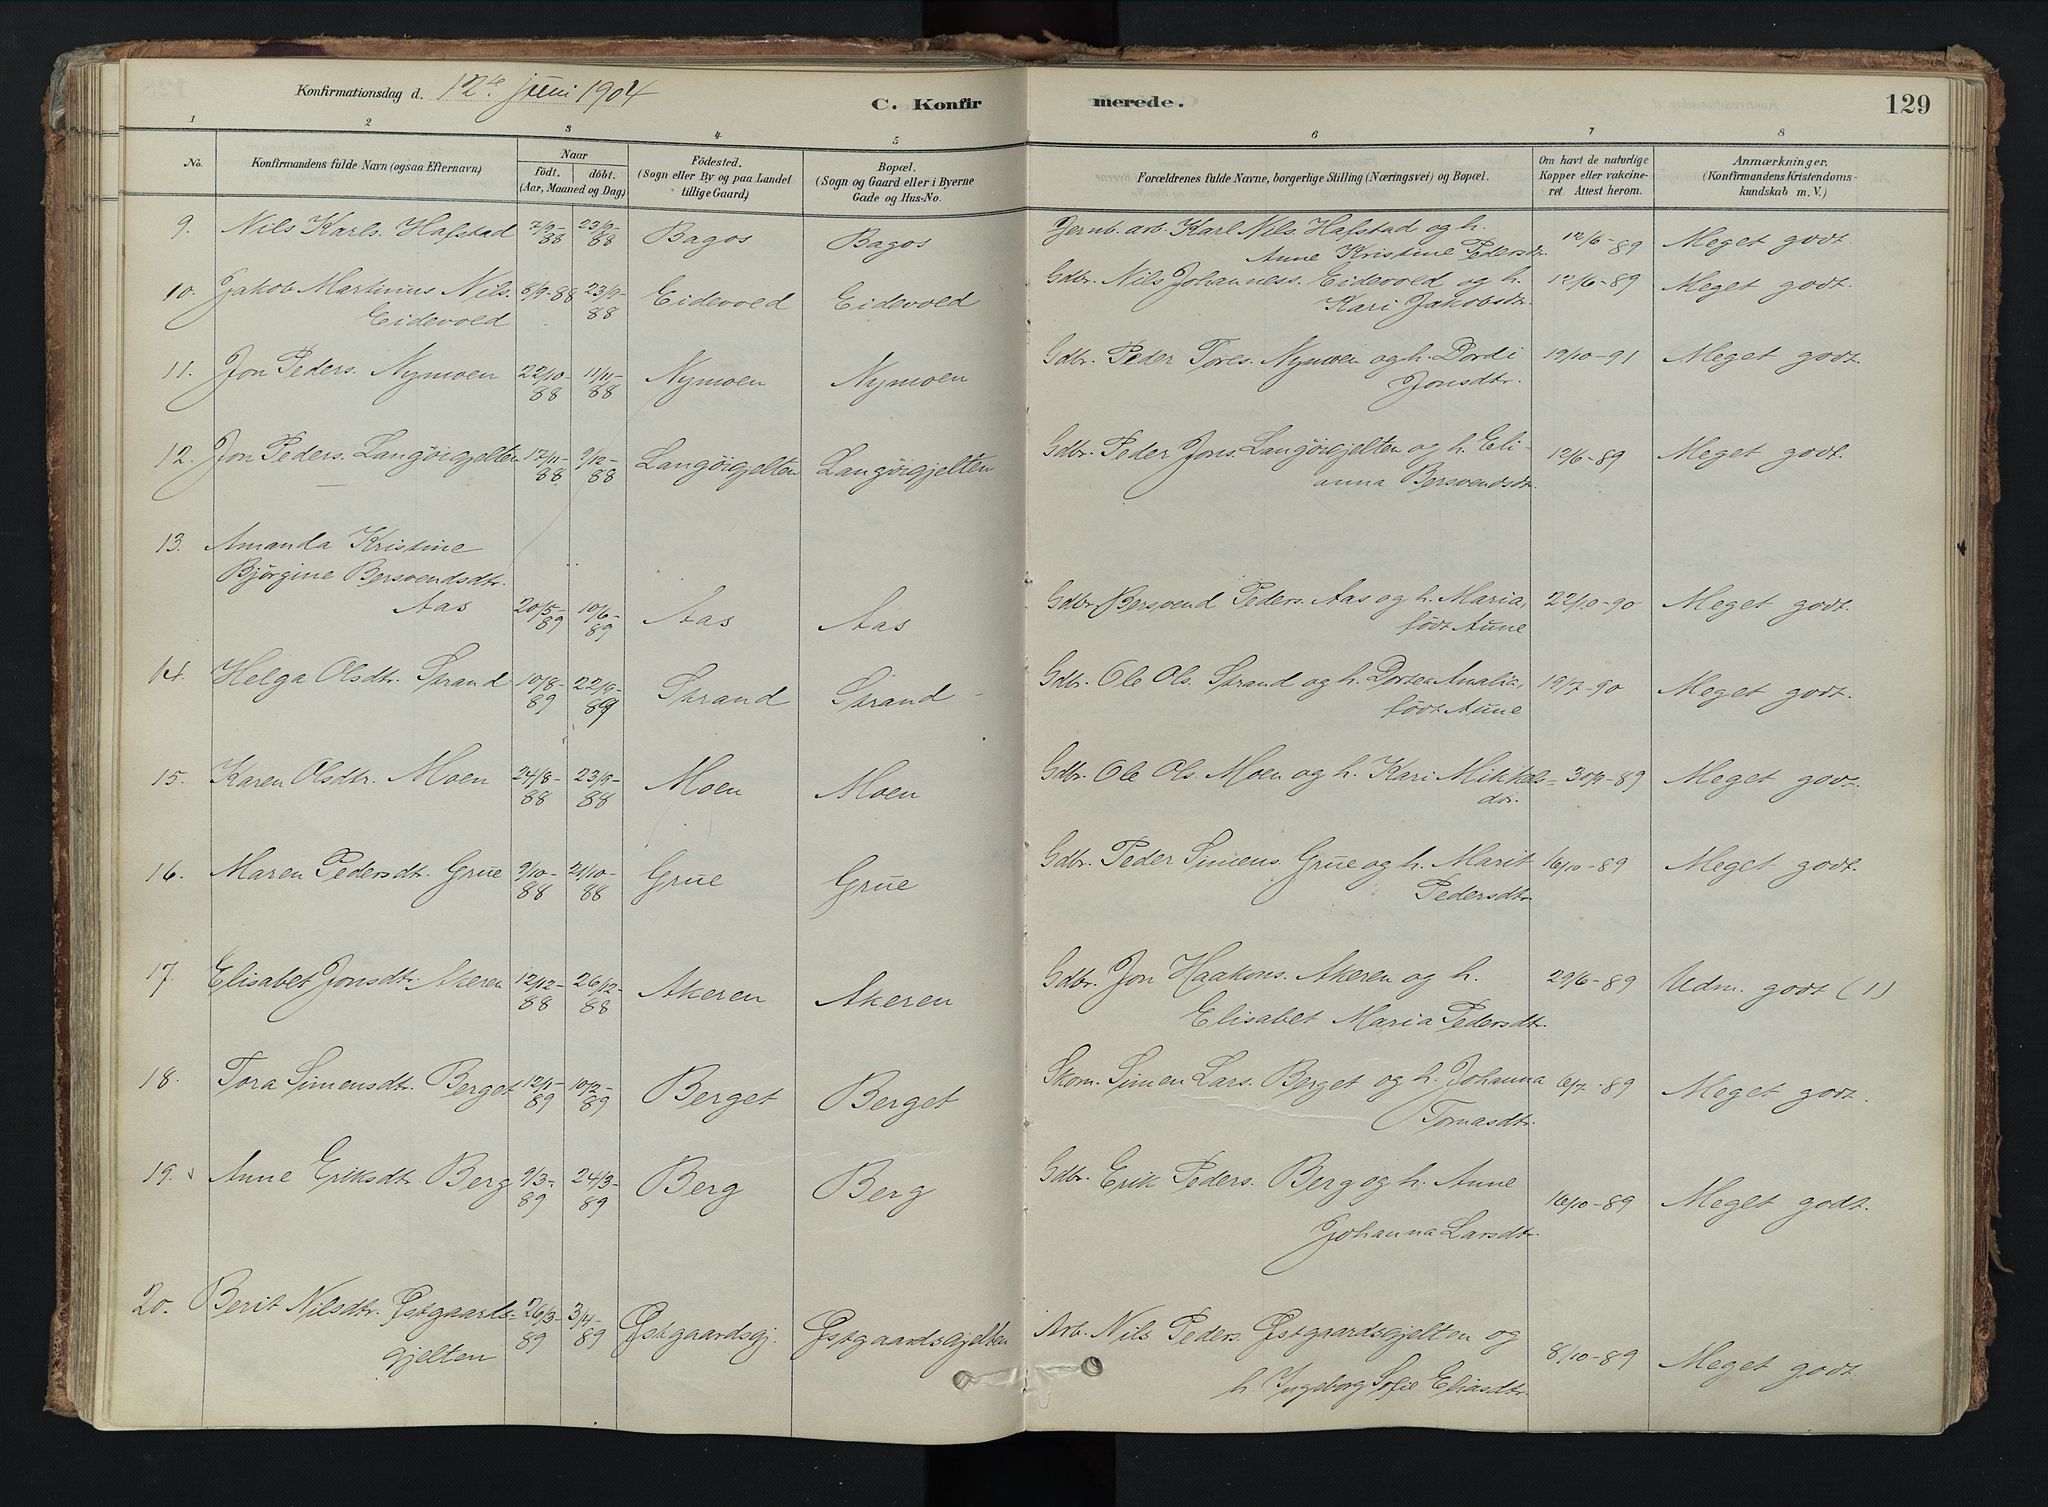 Konfirmationsdag d. 12te juni 1904
C. Konfirmerede.
129
1 2 3 4 5 6 7 8
No.
Konfirmandens fulde Navn (ogsaa Efternavn)
Naar
födt. döbt.
(Aar, Maaned og Dag)
Födested.
(Sogn eller By og paa Landet
tillige Gaard)
Bopæl.
(Sogn og Gaard eller i Byerne
Gade og Hus-No.
Forældrenes fulde Navne, borgerlige Stilling (Næringsvei) og Bopæl.
Om havt de naturlige
Kopper eller vakcine-
ret. Attest herom.
Anmærkninger.
(Konfirmandens Kristendoms-
kundskab m. V.)
9. Nils Karls. Hafstad 7/9-88 23/9-88 Bagos Bagos Jernb. arb. Karl Nils. Hafstad og h.
Anne Kristine Pedersdtr. 12/6-89 Meget godt.
10. Jakob Martinius Nils.
Eidevold 8/9-88 23/9-88 Eidevold Eidevold Gdbr. Nils Johanness. Eidevold og h.
Kari Jakobsdtr. 12/6-89 Meget godt.
11. Jon Peders. Nymoen 22/10-88 11/11-88 Nymoen Nymoen Gdbr. Peder Tores. Nymoen og h. Dordi
Jonsdtr. 19/10-91 Meget godt.
12. Jon Peders. Langörgjelten 17/11-88 9/12-88 Langörgjelten Langörgjelten Gdbr. Peder Jons. Langörgjelten og h. Eli-
anna Bersvendsdtr. 12/6-89 Meget godt.
13. Amanda Kristine
Bjørgine Bersvendsdtr.
Aas 20/5-89 10/6-89 Aas Aas Gdbr. Bersvend Peders. Aas og h. Maria,
født Aune 22/10-90 Meget godt.
14. Helga Olsdtr. Strand 10/8-89 22/9-89 Strand Strand Gdbr. Ole Ols. Strand og h. Dortea Amalia,
født Aune 19/7-90 Meget godt.
15. Karen Olsdtr. Moen 24/8-88 23/9-88 Moen Moen Gdbr. Ole Ols. Moen og h. Kari Mikkels-
dtr. 89 Meget godt.
16. Maren Pedersdtr. Grue 9/10-88 21/10-88 Grue Grue Gdbr. Peder Simens. Grue og h. Marit
Pedersdtr. 16/10-89 Meget godt.
17. Elisabet Jonsdtr. Akeren 12/12-88 26/12-88 Akeren Akeren Gdbr. Jon Haakons. Akeren og h.
Elisabet Maria Pedersdtr. 29/6-89 Udm. godt (1)
18. Tora Simensdtr. Berget 12/1-89 10/2-89 Berget Berget Skom. Simen Lars. Berget og h. Johanna
Tomasdtr. 6/7-89 Meget godt.
19. Anne Eriksdtr. Berg 9/3-89 24/3-89 Berg Berg Gdbr. Erik Peders. Berg og h. Anne
Johanna Larsdtr. 16/10-89 Meget godt.
20. Berit Nilsdtr. Østgaards-
gjelten 26/3-89 3/4-89 Østgaardsgj. Østgaardsgjelten Arb. Nils Peders. Østgaardsgjelten og
h. Ingeborg Sofie Eliasdtr. 8/10-89 Meget godt.